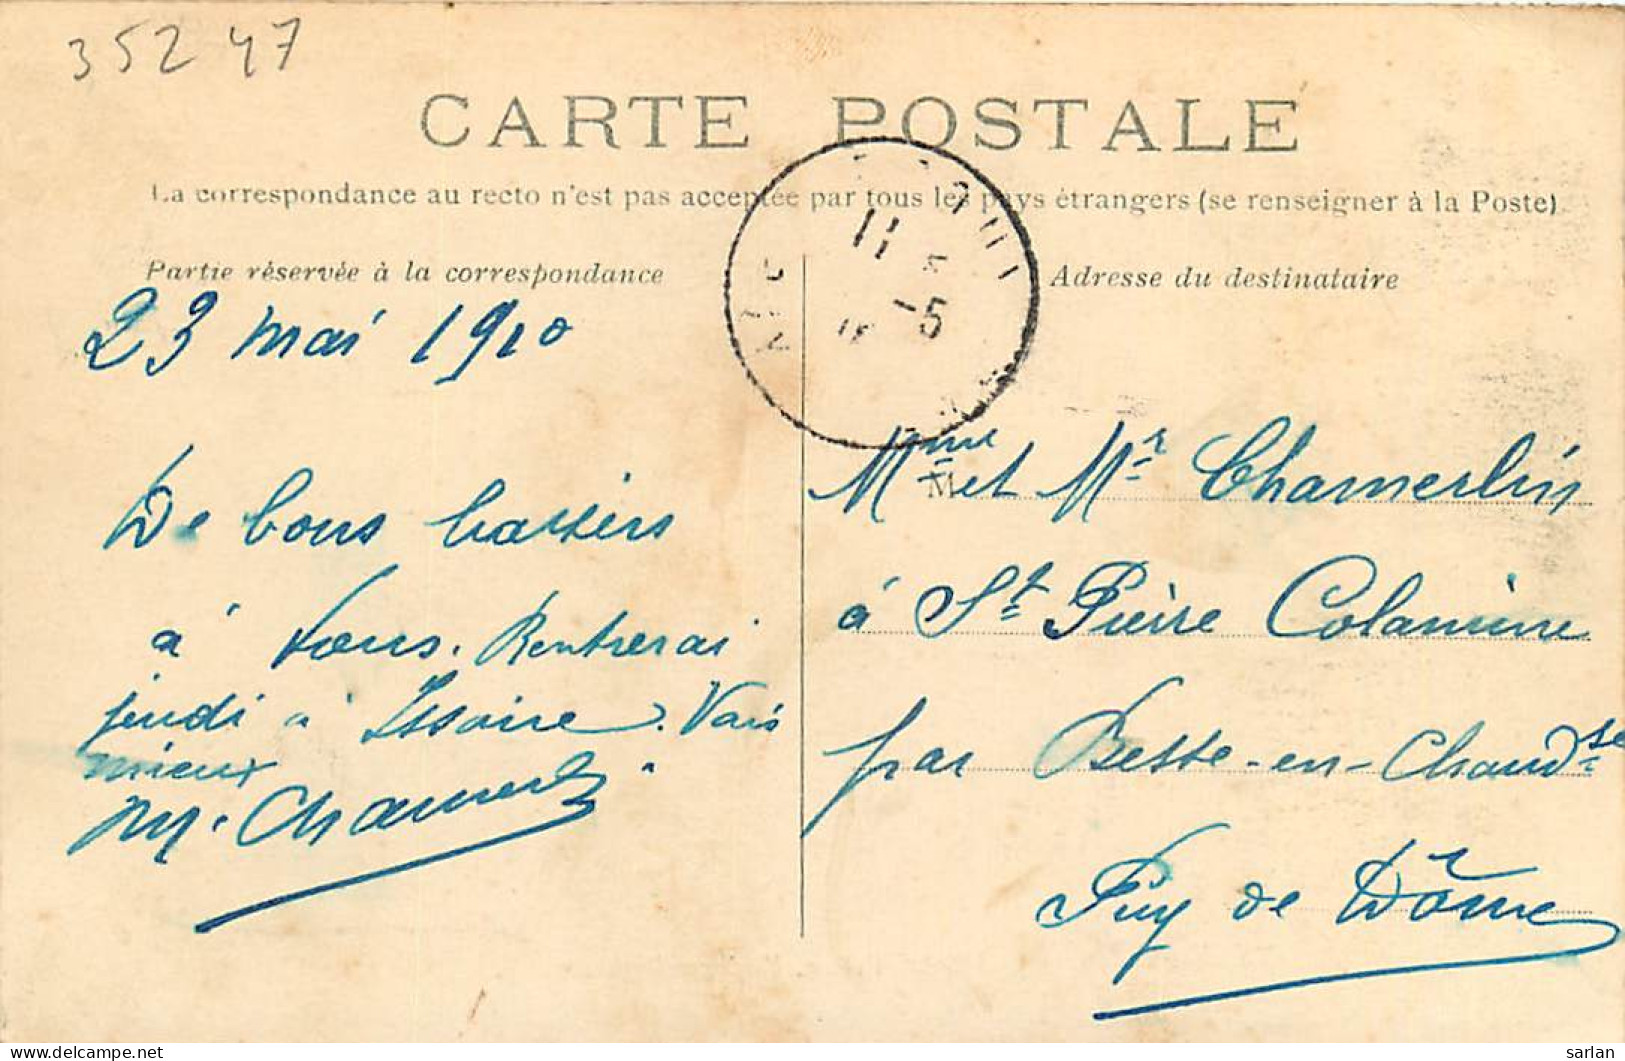 35247
CARTE POSTALE
La correspondance au recto n'est pas acceptée par tous les pays étrangers (se renseigner à la Poste)
Partie réservée à la correspondance
Adresse du destinataire
11
-5
23 mai 1910
De bons baisers
à vous. Rentrerai
jeudi à Issoire. Vais
mieux
M.
M
Mme et Mr Chamerlin
à St Pierre Colamine
par Besse-en-Chandse
Puy de Dôme
delcampe.net
sarlan